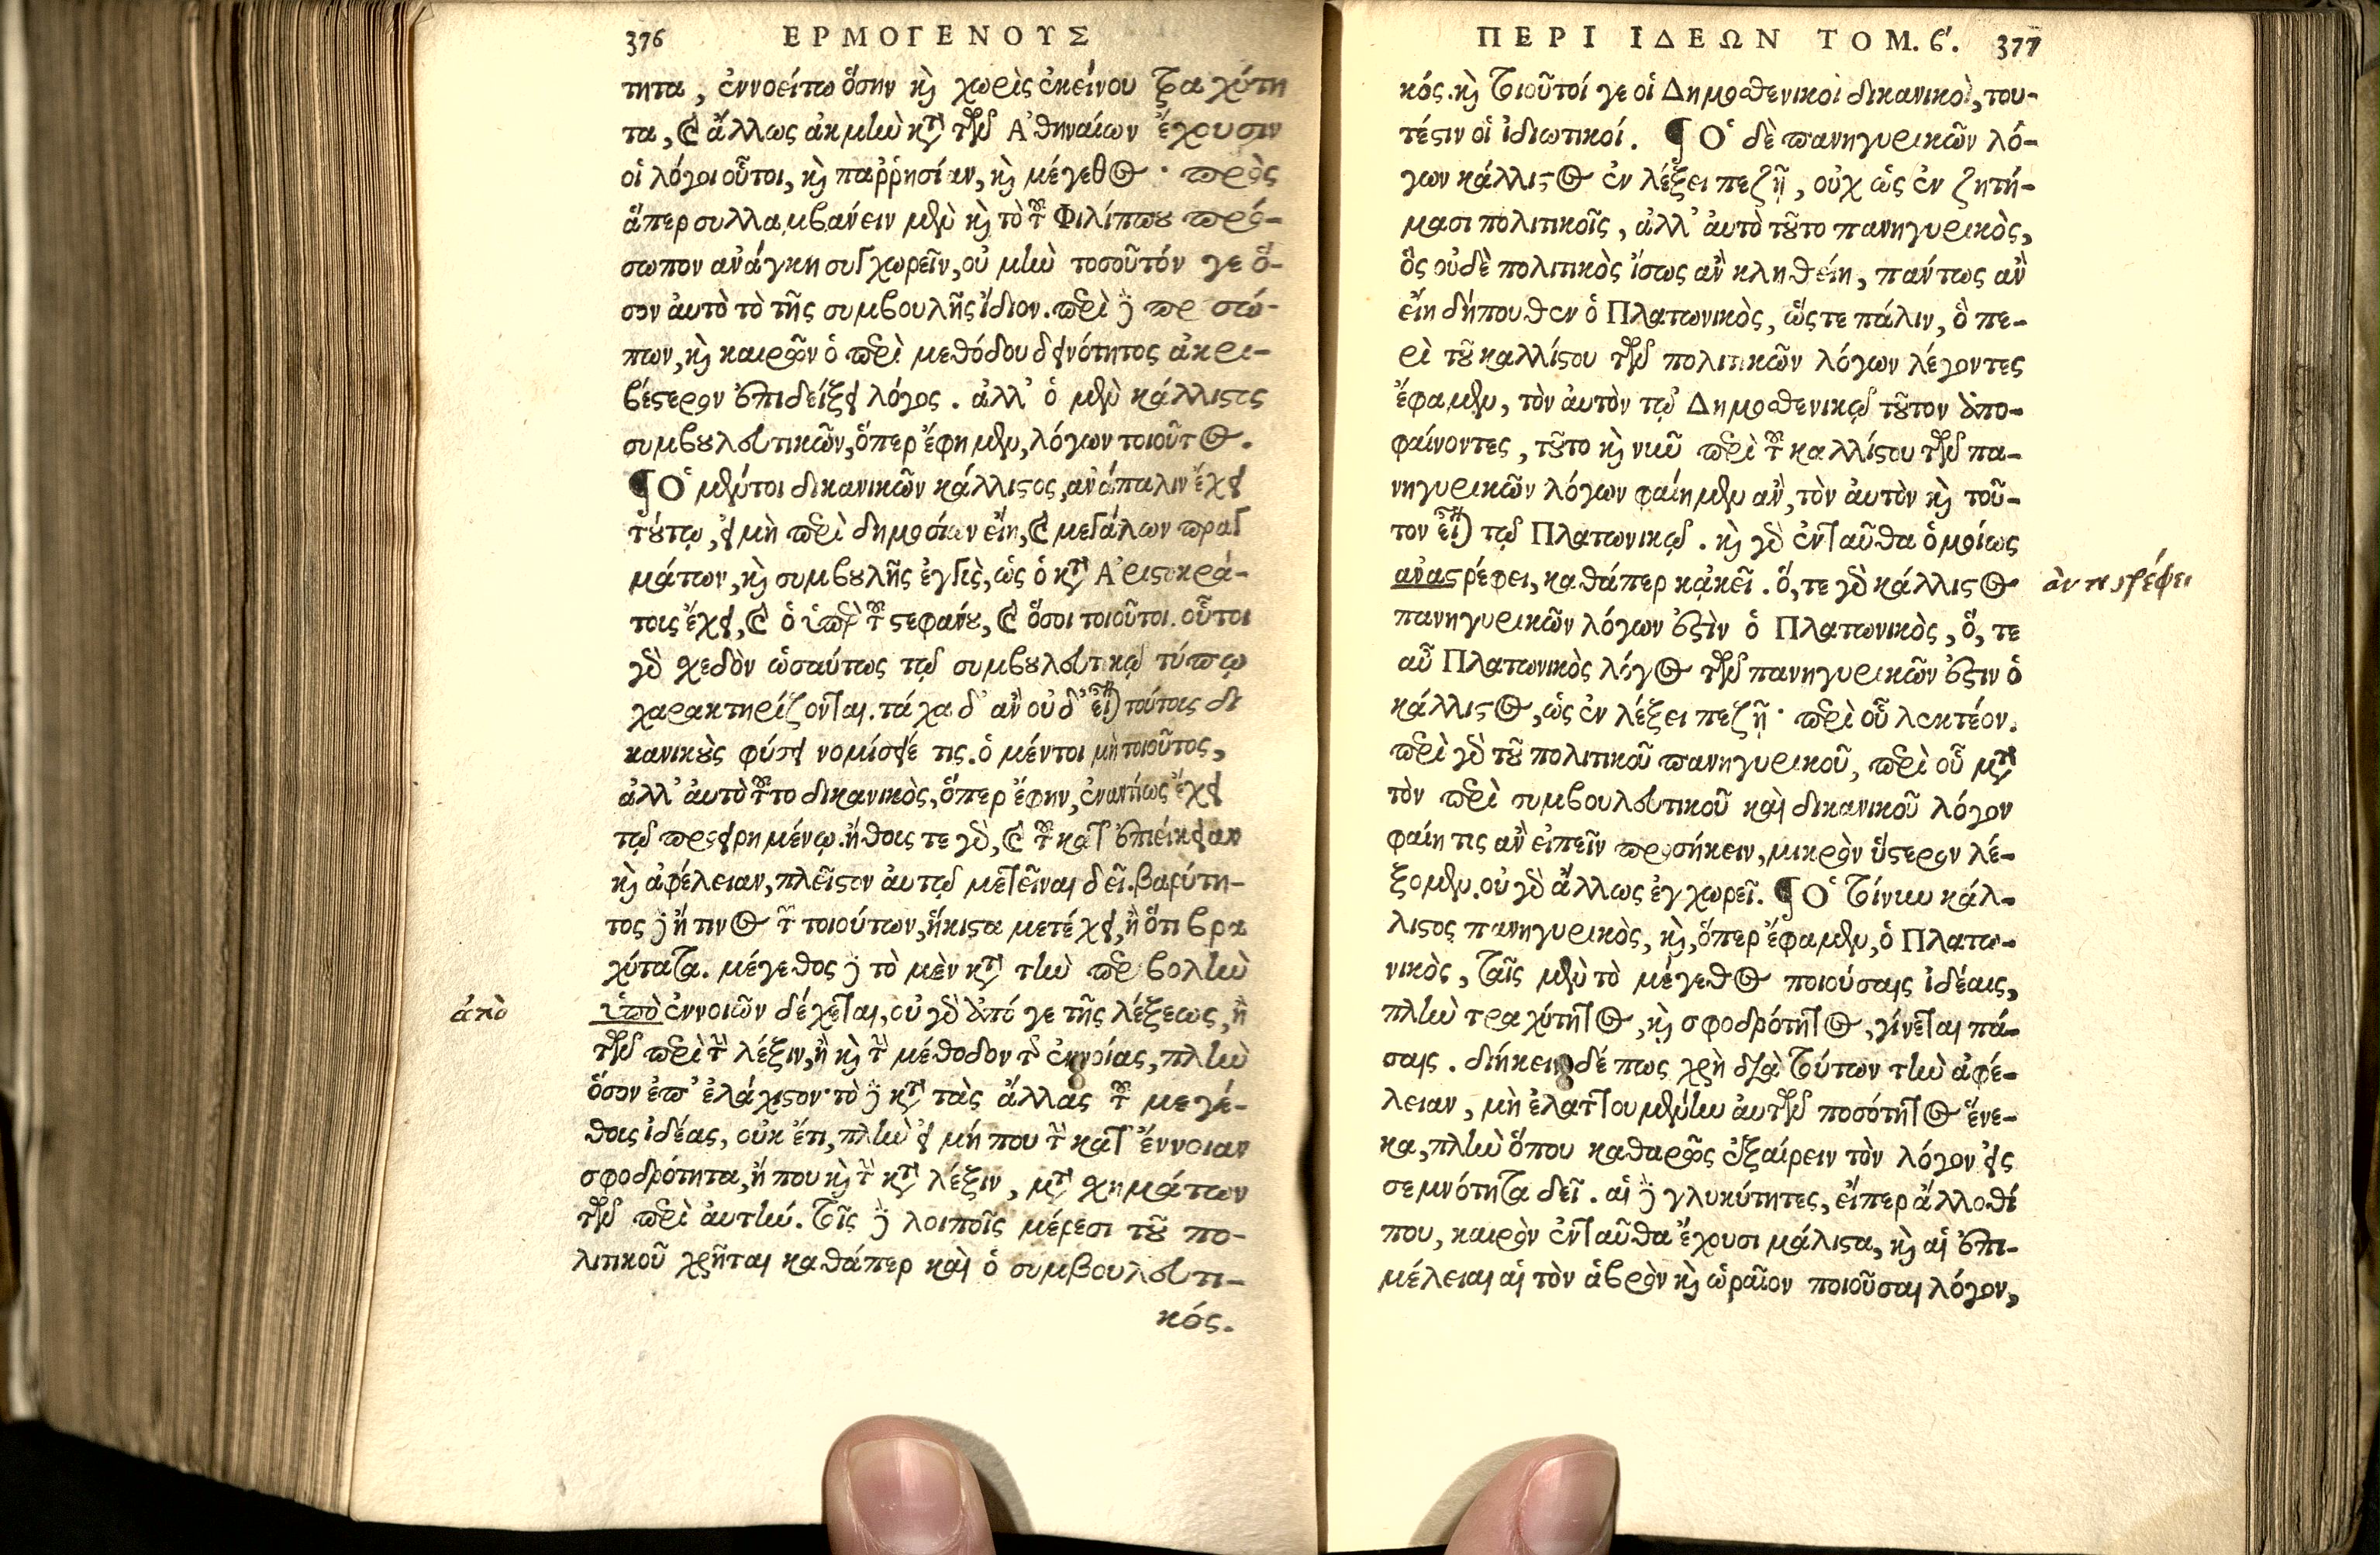 376 ΕΡΜΟΓΕΝΟΥΣ
τητα, ἐννοείτω ὅσην καὶ χωρὶς ἐκείνου τραχύτη
τα, καὶ ἄλλως ἀκμὴν κατὰ τῶν Ἀθηναίων ἔχουσιν
οἱ λόγοι οὗτοι, καὶ παῤῥησίαν, καὶ μέγεθος· πρὸς
ἅπερ συλλαμβάνειν μὲν καὶ τὸ τοῦ Φιλίππου πρό-
σωπον ἀνάγκη συγχωρεῖν, οὐ μὴν τοσοῦτόν γε ὅ-
σον αὐτὸ τὸ τῆς συμβουλῆς ἴδιον. περὶ δὲ προσώ-
πων, καὶ καιρῶν ὁ περὶ μεθόδου δεινότητος ἀκρι-
βέστερον ἐπιδείξει λόγος. ἀλλ' ὁ μὲν κάλλιστος
συμβουλευτικῶν, ὅπερ ἔφημεν, λόγων τοιοῦτος.
¶ Ὁ μέντοι δικανικῶν κάλλιστος, ἀνάπαλιν ἔχει
τούτῳ, εἰ μὴ περὶ δημοσίων εἴη, καὶ μεγάλων πραγ
μάτων, καὶ συμβουλῆς ἐγγὺς, ὡς ὁ κατὰ Ἀριστοκρά-
τοις ἔχει, καὶ ὁ ὑπὲρ τοῦ στεφάνου, καὶ ὅσοι τοιοῦτοι. οὗτοι
γὰρ σχεδὸν ὡσαύτως τῷ συμβουλευτικῷ τύπῳ
χαρακτηρίζονται. τάχα δ' ἂν οὐδ' εἶναι τούτοις δι
κανικοὺς φύσει νομίσειέ τις. ὁ μέντοι μὴ τοιοῦτος,
ἀλλ' αὐτὸ τοῦτο δικανικὸς, ὅπερ ἔφην, ἐναντίως ἔχει
τῷ προειρημένῳ. ἤθοις τε γὰρ, καὶ τοῦ κατ' ἐπιείκειαν
καὶ ἀφέλειαν, πλεῖστον αὐτῷ μετεῖναι δεῖ. βαρύτη-
τος δὲ ἤ τινος τῶν τοιούτων, ἥκιστα μετέχει, ἢ ὅτι βρα
χύτατα. μέγεθος δὲ τὸ μὲν κατὰ τὴν περιβολὴν
ἀπὸ
ὑπὸ ἐννοιῶν δέχεται, οὐ γὰρ ἀπό γε τῆς λέξεως, ἢ
τῶν περὶ τὴν λέξιν, ἢ καὶ τὴν μέθοδον τῆς ἐννοίας, πλὴν
ὅσον ἐπ' ἐλάχιστον· τὸ δὲ κατὰ τὰς ἄλλας τοῦ μεγέ-
θοις ἰδέας, οὐκ ἔτι, πλὴν εἰ μή που τὴν κατ' ἔννοιαν
σφοδρότητα, ἤ που καὶ τὴν κατὰ λέξιν, μετὰ σχημάτων
τῶν περὶ αὐτήν. τοῖς δὲ λοιποῖς μέρεσι τοῦ πο-
λιτικοῦ χρῆται καθάπερ καὶ ὁ συμβουλευτι-
κός.
ΠΕΡΙ ΙΔΕΩΝ ΤΟΜ. Ϛ'. 377
κός. καὶ τοιοῦτοί γε οἱ Δημοσθενικοὶ δικανικοὶ, του-
τέστιν οἱ ἰδιωτικοί. ¶ Ὁ δὲ πανηγυρικῶν λό-
γων κάλλιστος ἐν λέξει πεζῇ, οὐχ ὡς ἐν ζητή-
μασι πολιτικοῖς, ἀλλ' αὐτὸ τοῦτο πανηγυρικὸς,
ὃς οὐδὲ πολιτικὸς ἴσως ἂν κληθείη, πάντως ἂν
εἴη δήπουθεν ὁ Πλατωνικὸς, ὥστε πάλιν, ὃ πε-
ρὶ τοῦ καλλίστου τῶν πολιτικῶν λόγων λέγοντες
ἔφαμεν, τὸν αὐτὸν τῷ Δημοσθενικῷ τοῦτον ἀπο-
φαίνοντες, τοῦτο καὶ νῦν περὶ τοῦ καλλίστου τῶν πα-
νηγυρικῶν λόγων φαίημεν ἂν, τὸν αὐτὸν καὶ τοῦ-
τον εἶναι τῷ Πλατωνικῷ. καὶ γὰρ ἐνταῦθα ὁμοίως
ἀναστρέφει, καθάπερ κἀκεῖ. ὅ, τε γὰρ κάλλιστος
ἀντιστρέφει
πανηγυρικῶν λόγων ἐστὶν ὁ Πλατωνικὸς, ὅ, τε
αὖ Πλατωνικὸς λόγος τῶν πανηγυρικῶν ἐστιν ὁ
κάλλιστος, ὡς ἐν λέξει πεζῇ· περὶ οὗ λεκτέον.
περὶ γὰρ τοῦ πολιτικοῦ πανηγυρικοῦ, περὶ οὗ μετὰ
τὸν περὶ συμβουλευτικοῦ καὶ δικανικοῦ λόγον
φαίη τις ἂν εἰπεῖν προσήκειν, μικρὸν ὕστερον λέ-
ξομεν. οὐ γὰρ ἄλλως ἐγχωρεῖ. ¶ Ὁ τοίνυν κάλ-
λιστος πανηγυρικὸς, καὶ, ὅπερ ἔφαμεν, ὁ Πλατω-
νικὸς, ταῖς μὲν τὸ μέγεθος ποιούσαις ἰδέαις,
πλὴν τραχύτητος, καὶ σφοδρότητος, γίνεται πά-
σαις. διήκειν δέ πως χρὴ διὰ τούτων τὴν ἀφέ-
λειαν, μὴ ἐλαττουμένην αὐτῶν ποσότητος ἕνε-
κα, πλὴν ὅπου καθαρῶς ἐξαίρειν τὸν λόγον εἰς
σεμνότητα δεῖ. αἱ δὲ γλυκύτητες, εἴπερ ἄλλοθί
που, καιρὸν ἐνταῦθα ἔχουσι μάλιστα, καὶ αἱ ἐπι-
μέλειαι αἱ τὸν ἁβρὸν καὶ ὡραῖον ποιοῦσαι λόγον,